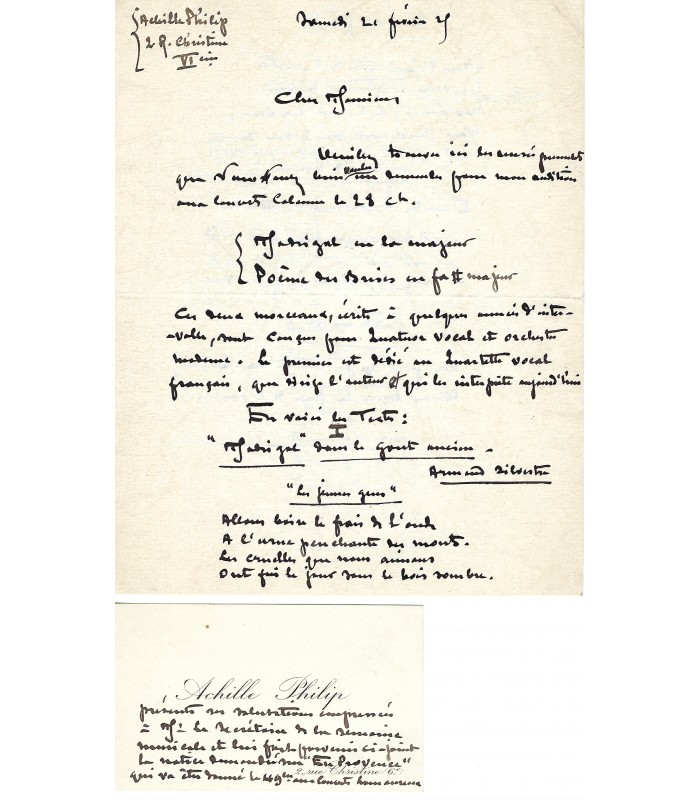 Achille Philip
2 R. Christine
VI em
Samedi 21 février 25
Cher Monsieur
Veuillez trouver ici les
que vous bien voulu me demander pour mon audition
aux Concerts Colonne le 28 ct.
Madrigal en la majeur
Poème des Brises en fa # majeur
Ces deux morceaux, écrits à quelques années d'inter-
valle, sont conçus pour Quatuor vocal et orchestre
moderne. Le premier est dédié au Quartette vocal
français, que dirige l'auteur & qui les interprète aujourd'hui
En voici les Textes :
I
"Madrigal" dans le goût ancien -
Armand Silvestre
"Les jeunes gens"
Allons boire le frais de l'onde
A l'urne penchante des monts.
Les cruelles que nous aimons
Ont fui le jour dans le bois sombre.
Achille Philip
présente ses salutations empressées
à Mr Le Secrétaire de la Semaine
musicale et lui fait parvenir ci-joint
la notice demandée sur "En Provence"
2, rue Christine (6e)
qui va être donné le aux concerts